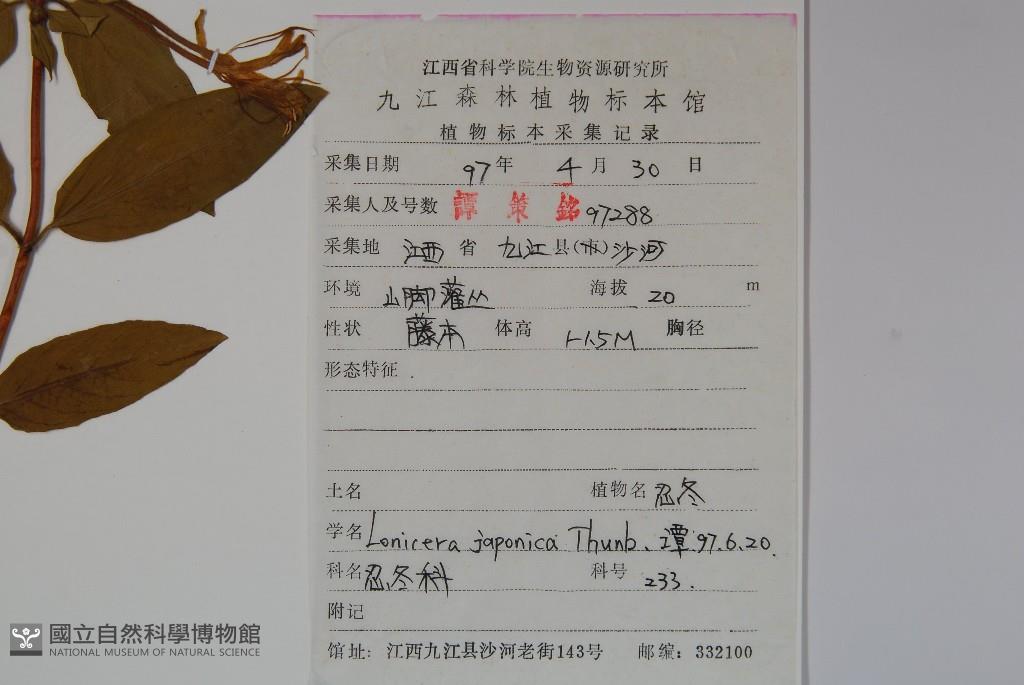 江西省科学院生物资源研究所
九江森林植物标本馆
植物标本采集记录
采集日期 97 年 4 月 30 日
采集人及号数 譚策銘 97288
采集地 江西 省 九江 县(市) 沙河
环境 山脚灌丛 海拔 20 m
性状 藤本 体高 1-1.5M 胸径
形态特征
土名 植物名 忍冬
学名 Lonicera japonica Thunb. 谭.97.6.20.
科名 忍冬科 科号 233.
附记
馆址: 江西九江县沙河老街143号 邮编: 332100
國立自然科學博物館
NATIONAL MUSEUM OF NATURAL SCIENCE